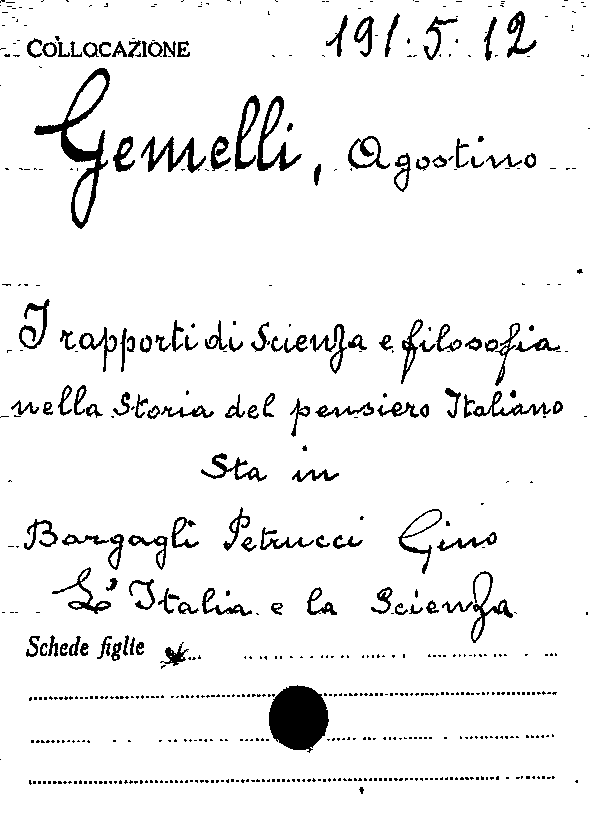 COLLOCAZIONE 191.5.12
Gemelli, Agostino
I rapporti di Scienza e filosofia
nella Storia del pensiero Italiano
Sta in
Bargagli Petrucci Gino
L'Italia e la Scienza
Schede figlie